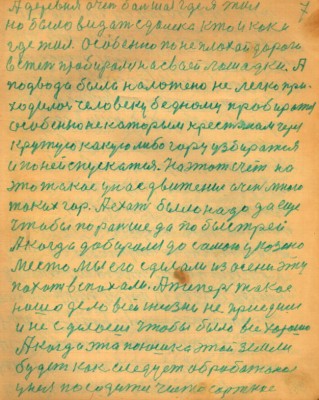 А деревня очен балшая где я жил
7
но было видат сдалека кто и как и
где жил. Особенно по не плохай дороги
в степ пробирали на сваей лошадки. А
подвода была наложено не легко при-
ходилос человеку бедному пробиратся
особенно не каторым крестянам через
крутую какую либо гору узбиратся
и по ней спускатся. На этот счёт
это такое у нас движение очен много
таких гор. А ехат было надо да еще
чтобы пораньше да по быстрей
А когда добирались до самого указано
место мы его зделали из осени эту
пахот вспахали. А теперь такое
нашо дело всей жизнь не
и не сделаем чтобы было все хорошо
А когда эта полоника этой земли
будет как следует обработанае
у ния посодити